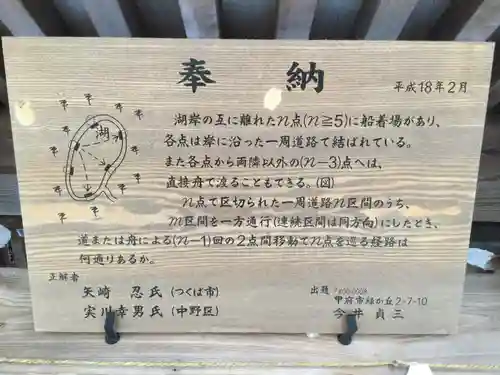 奉納
平成18年2月
湖
湖岸の互に離れたn点(n≧5)に船着場があり、
各点は岸に沿った一周道路で結ばれている。
また各点から両隣以外の(n-3)点へは、
直接舟で渡ることもできる。(図)
n点で区切られた一周道路n区間のうち、
m区間を一方通行(連続区間は同方向)にしたとき、
道または舟による(n-1)回の2点間移動でn点を巡る経路は
何通りあるか。
正解者
矢崎 忍氏(つくば市)
実川幸男氏(中野区)
出題
甲府市緑が丘2-7-10
今井貞三